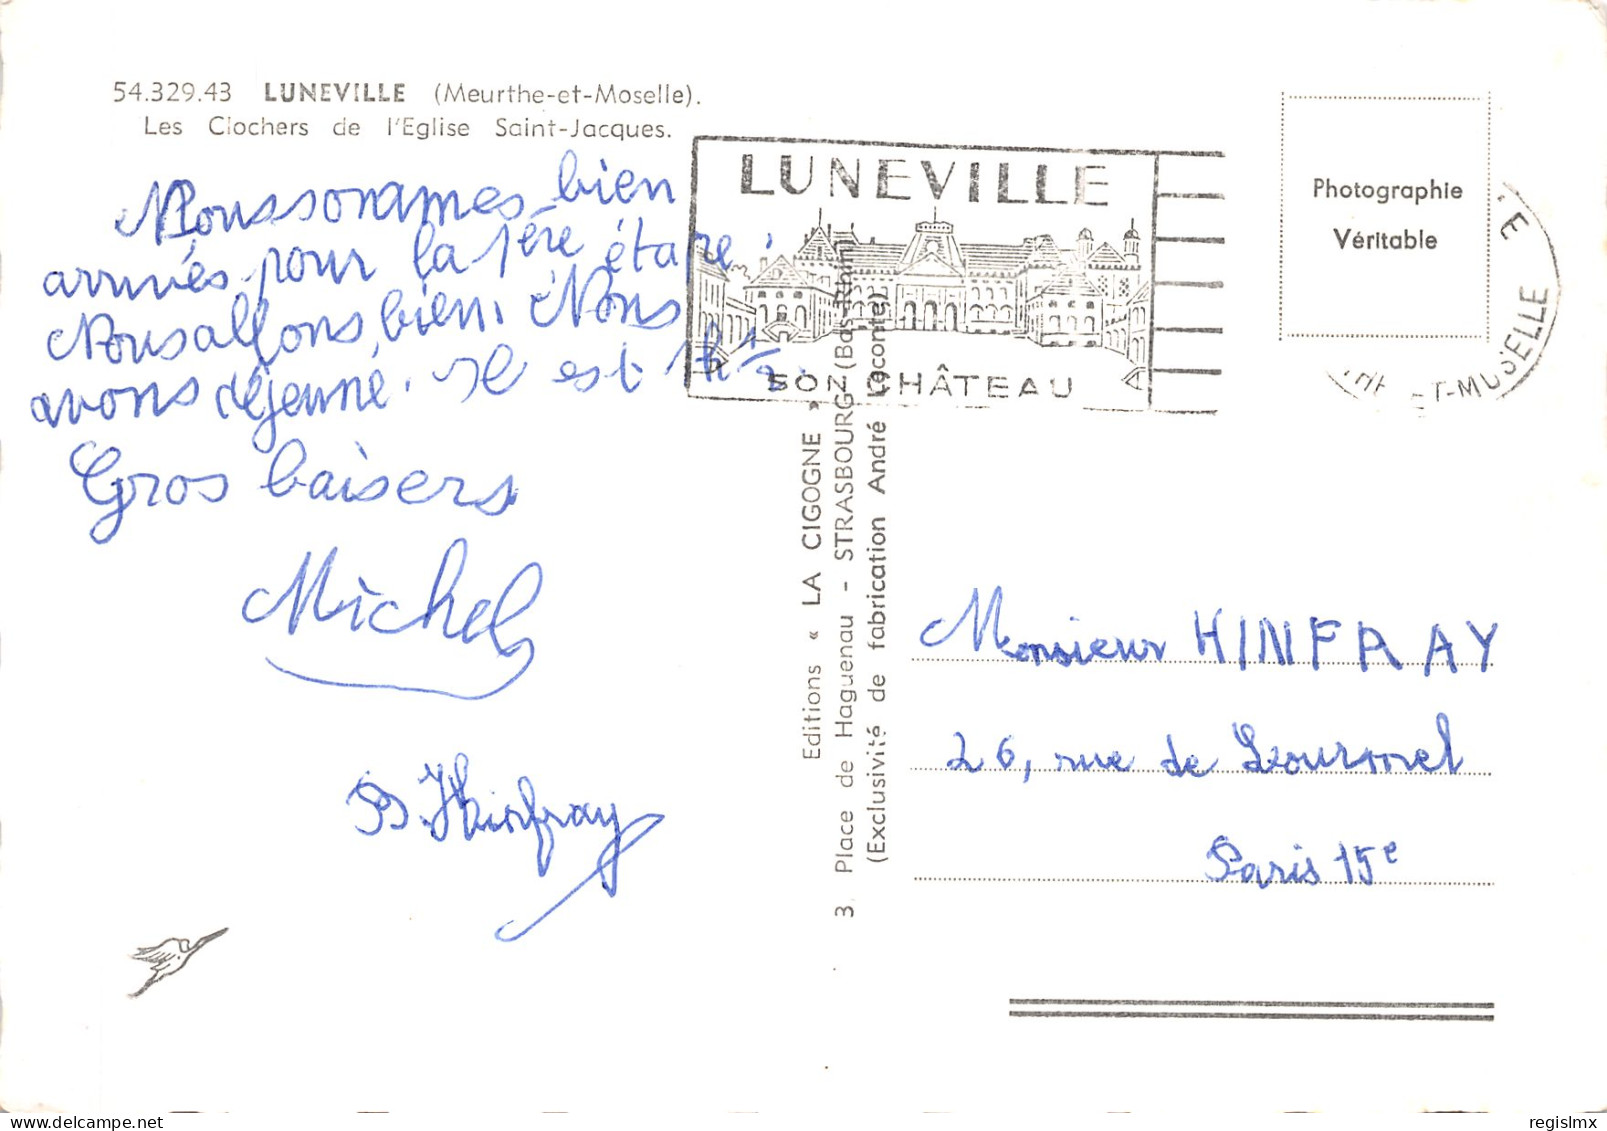 54.329.43 LUNEVILLE (Meurthe-et-Moselle).
Les Clochers de l'Eglise Saint-Jacques.
Nous sommes bien
arrivés pour la 1ère étape.
Nous allons bien. Nous
avons déjeuné. Il est 1h 1/2
Gros baisers
Michel
Hinfray
LUNEVILLE
SON CHÂTEAU
ET-MOSELLE
Photographie
Véritable
Editions « LA CIGOGNE »
3, Place de Haguenau - STRASBOURG (Bas-Rhin)
(Exclusivité de fabrication André Leconte)
Monsieur HINFRAY
26, rue de Lourmel
Paris 15e
regislmx